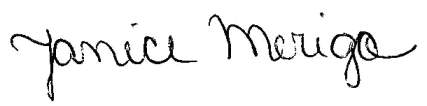 Janice Meriga